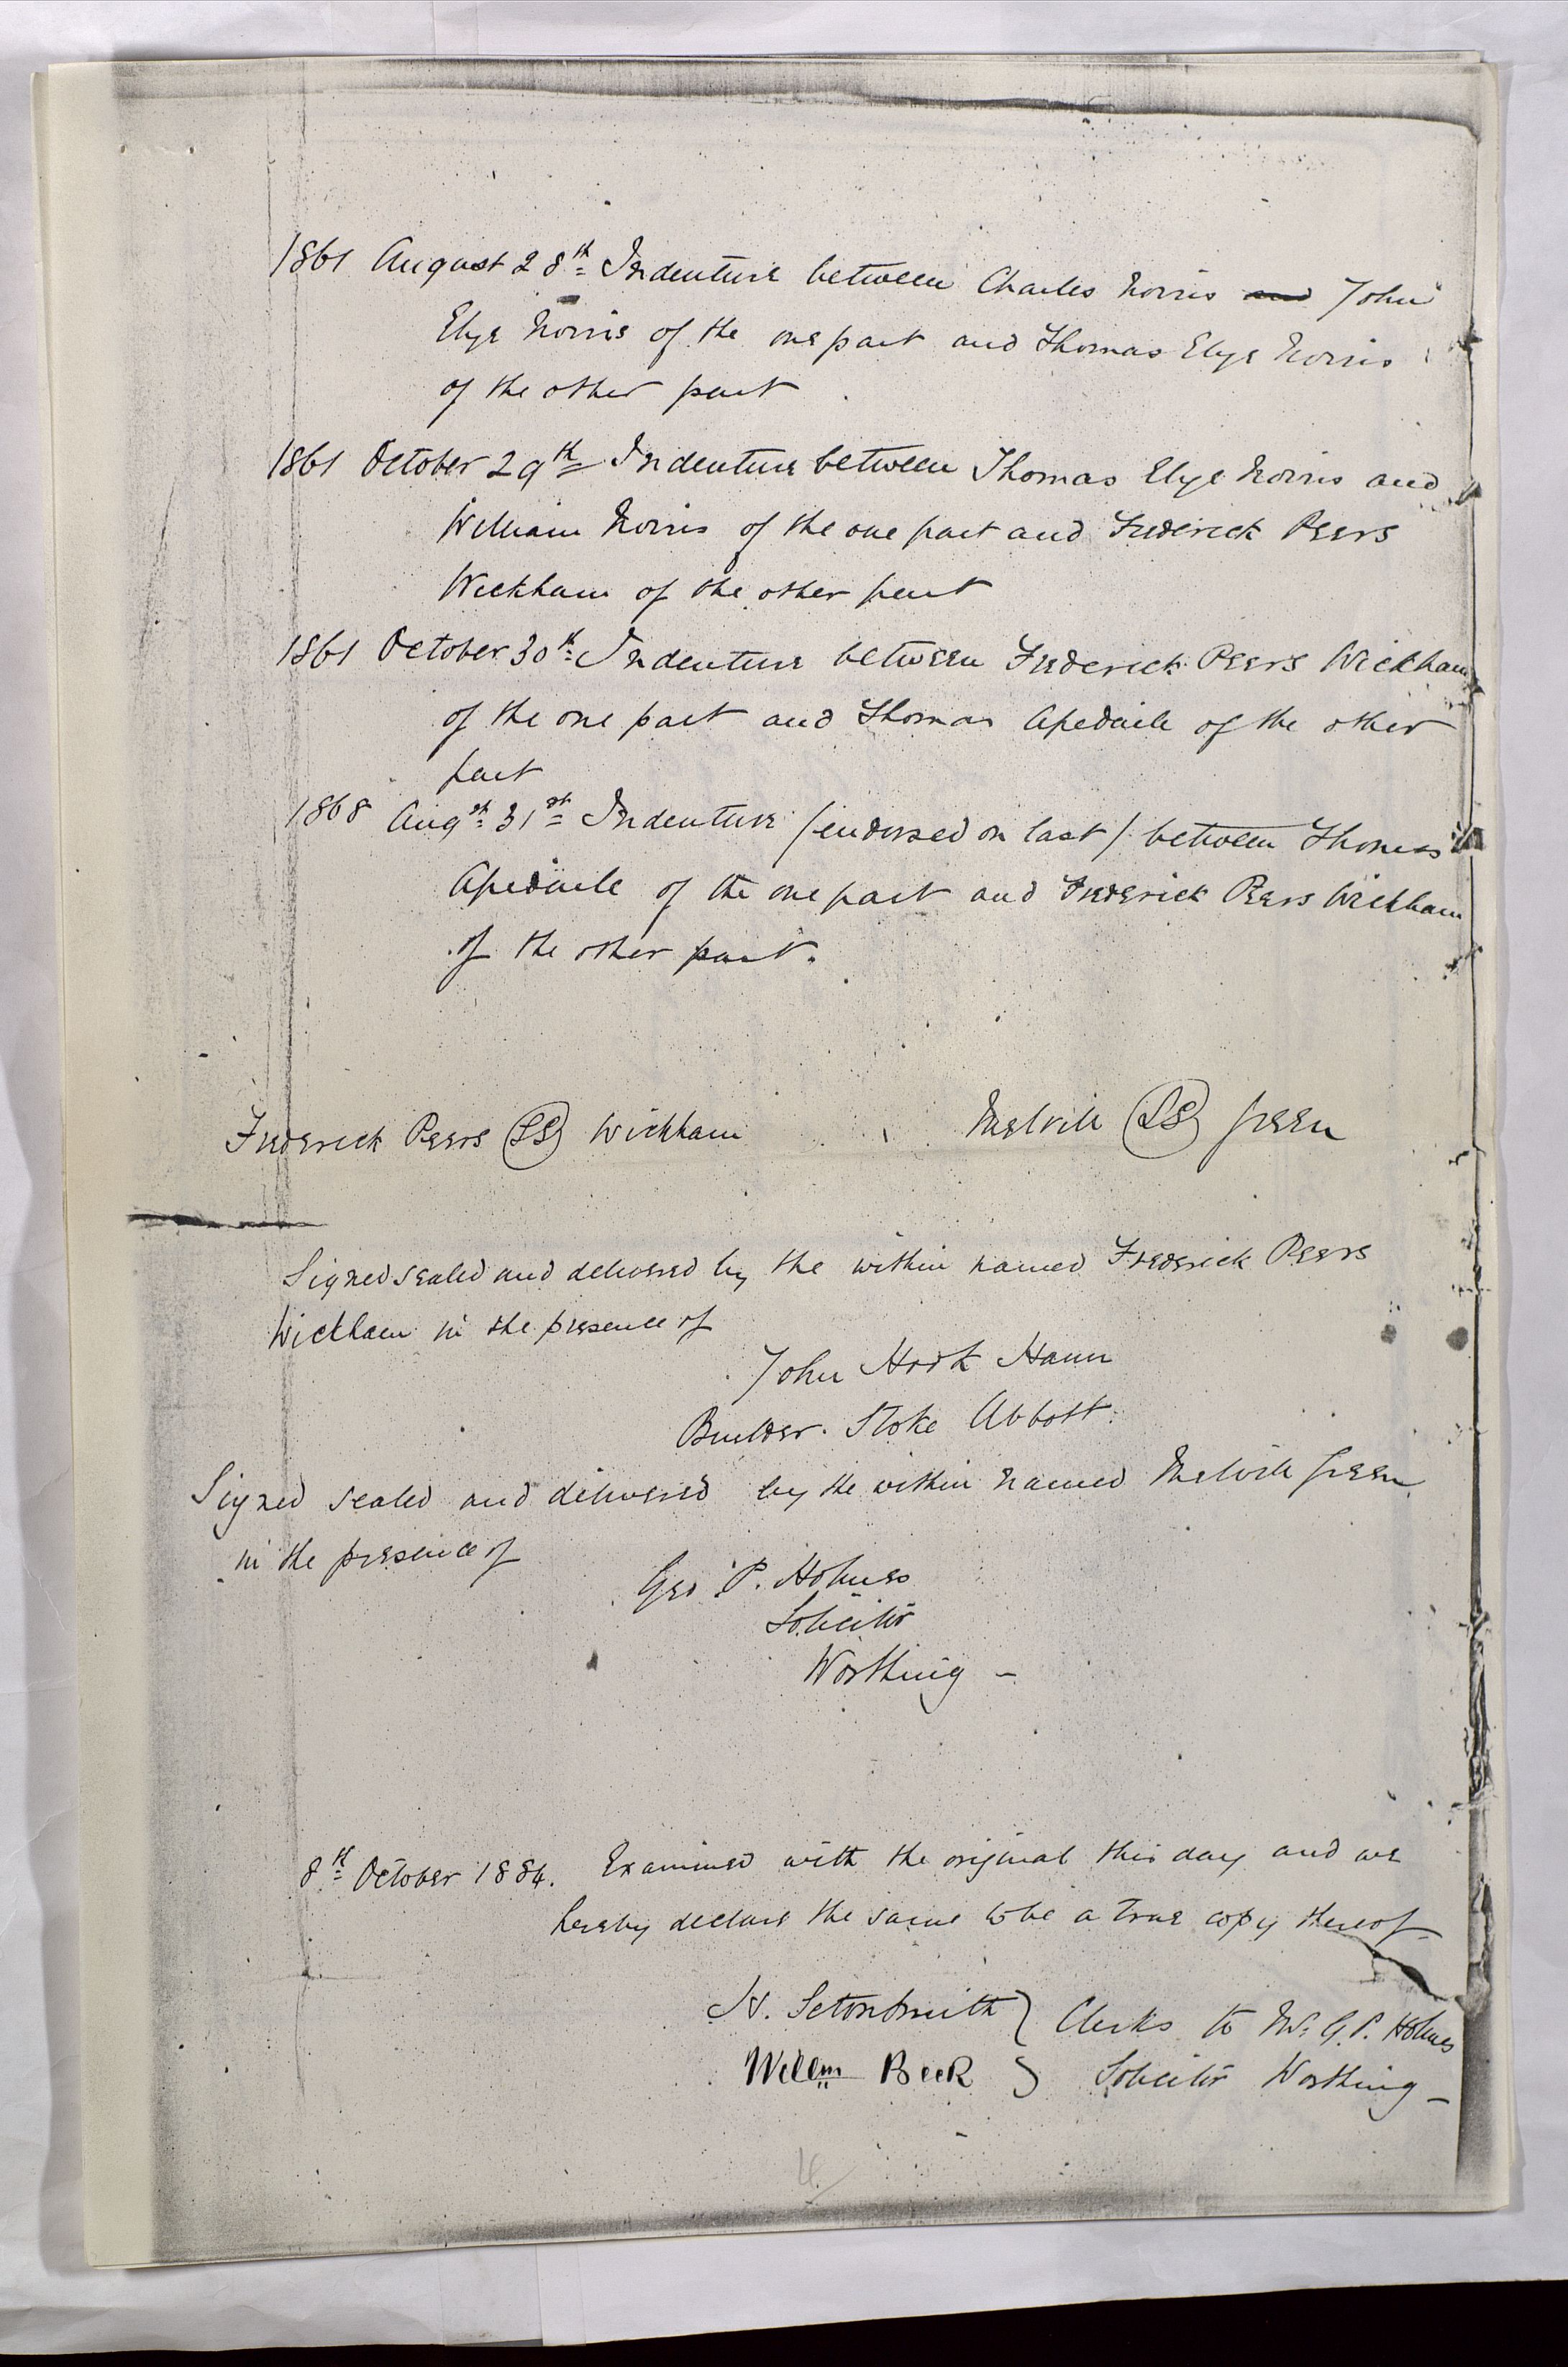 1861 August 28th Indenture between Charles Norris and John
Elye Norris of the one part and Thomas Elye Norris
of the other part
1861 October 29th Indenture between Thomas Elye Norris and
William Norris of the one part and Frederick Peers
Wickham of the other part
1861 October 30th Indenture between Frederick Peers Wickham
of the one part and Thomas Apedaile of the other
part
1868 Augst 31st Indenture /endorsed on last/ between Thomas
Apedaile of the one part and Frederick Peers Wickham
of the other part.
Frederick Peers LS Wickham Melvill LS Green
Signed sealed and delivered by the within named Frederick Peers
Wickham in the presence of
John Hook Hann
Builder. Stoke Abbott.
Signed sealed and delivered by the within named Melvill Green
in the presence of
Geo P. Holmes
Solicitor
Worthing -
8th October 1884. Examined with the original this day and we
hereby declare the same to be a true copy thereof
H. Setonsmith } Clerks to Mr G. P. Holmes
Willm Beck } Solicitor Worthing -
4